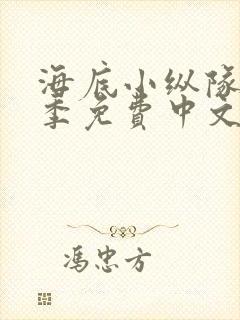 海底小纵队
季免費中文
冯忠方